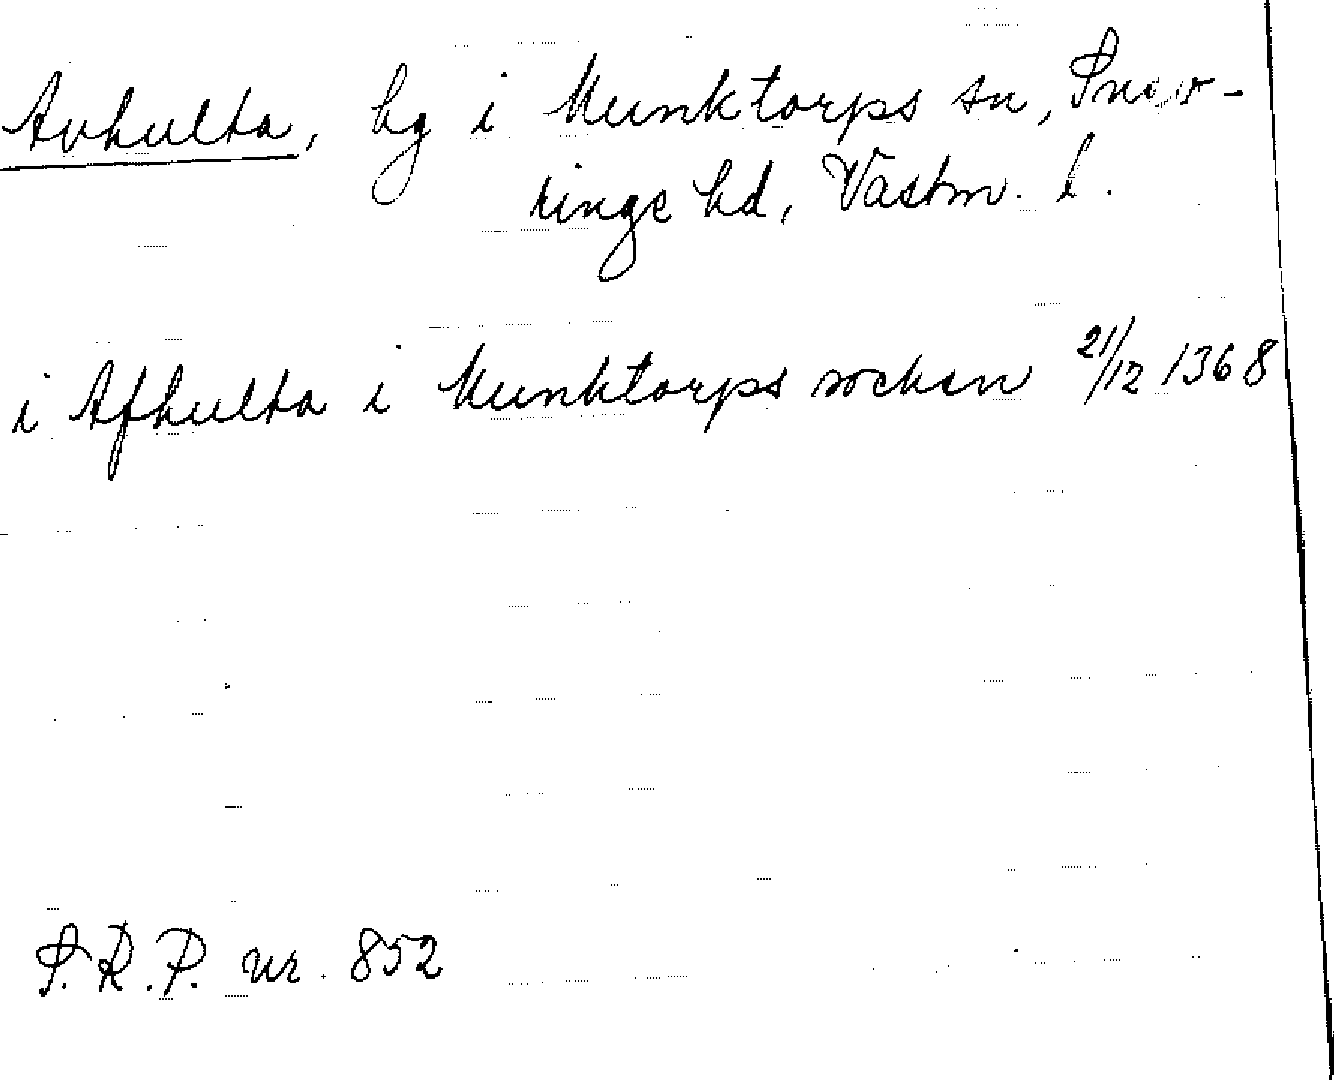 Avhulta, hg i Munktorps sn, Snev-
ringe hd, Västm. l.
i Afhulta i Munktorps socken 21/12 1368
S.R.P. nr. 852